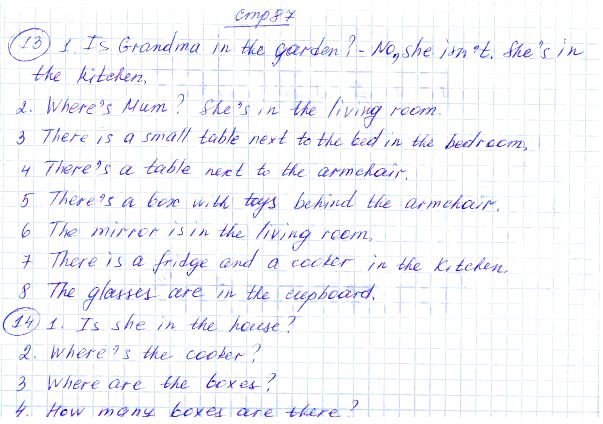 стр 87
13 1. Is Grandma in the garden? - No, she isn't. She's in
the kitchen.
2. Where's Mum? She's in the living room.
3 There is a small table next to the bed in the bedroom.
4 There's a table next to the armchair.
5 There's a box with toys behind the armchair.
6 The mirror is in the living room.
7 There is a fridge and a cooker in the kitchen.
8 The glasses are in the cupboard.
14 1. Is she in the house?
2. Where's the cooker?
3 Where are the boxes?
4. How many boxes are there?